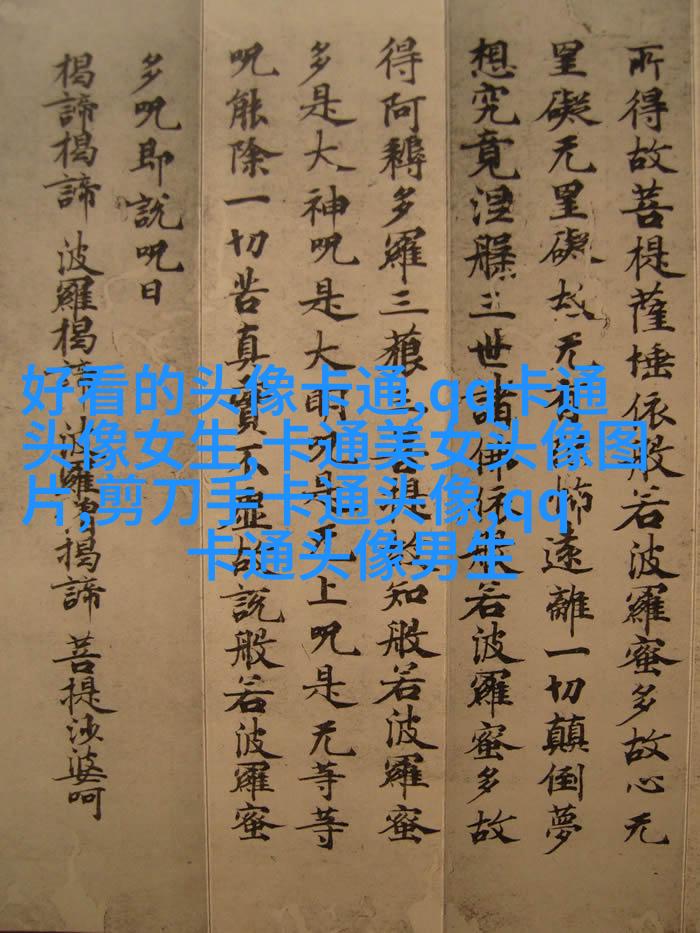 所得故菩提薩埵依般若波羅蜜多故心无
罣礙无罣礙故无有恐怖遠離一切顛倒夢
想究竟涅槃三世諸佛依般若波羅蜜多故
得阿耨多羅三藐三菩提故知般若波羅蜜
多是大神呪是大明呪是无上呪是无等等
呪能除一切苦真實不虛故說般若波羅蜜
多呪即說呪曰
揭諦揭諦 波羅揭諦 波羅僧揭諦 菩提沙婆呵
好看的头像卡通,qq卡通
头像女生,卡通美女头像图
片,剪刀手卡通头像,qq
卡通头像男生